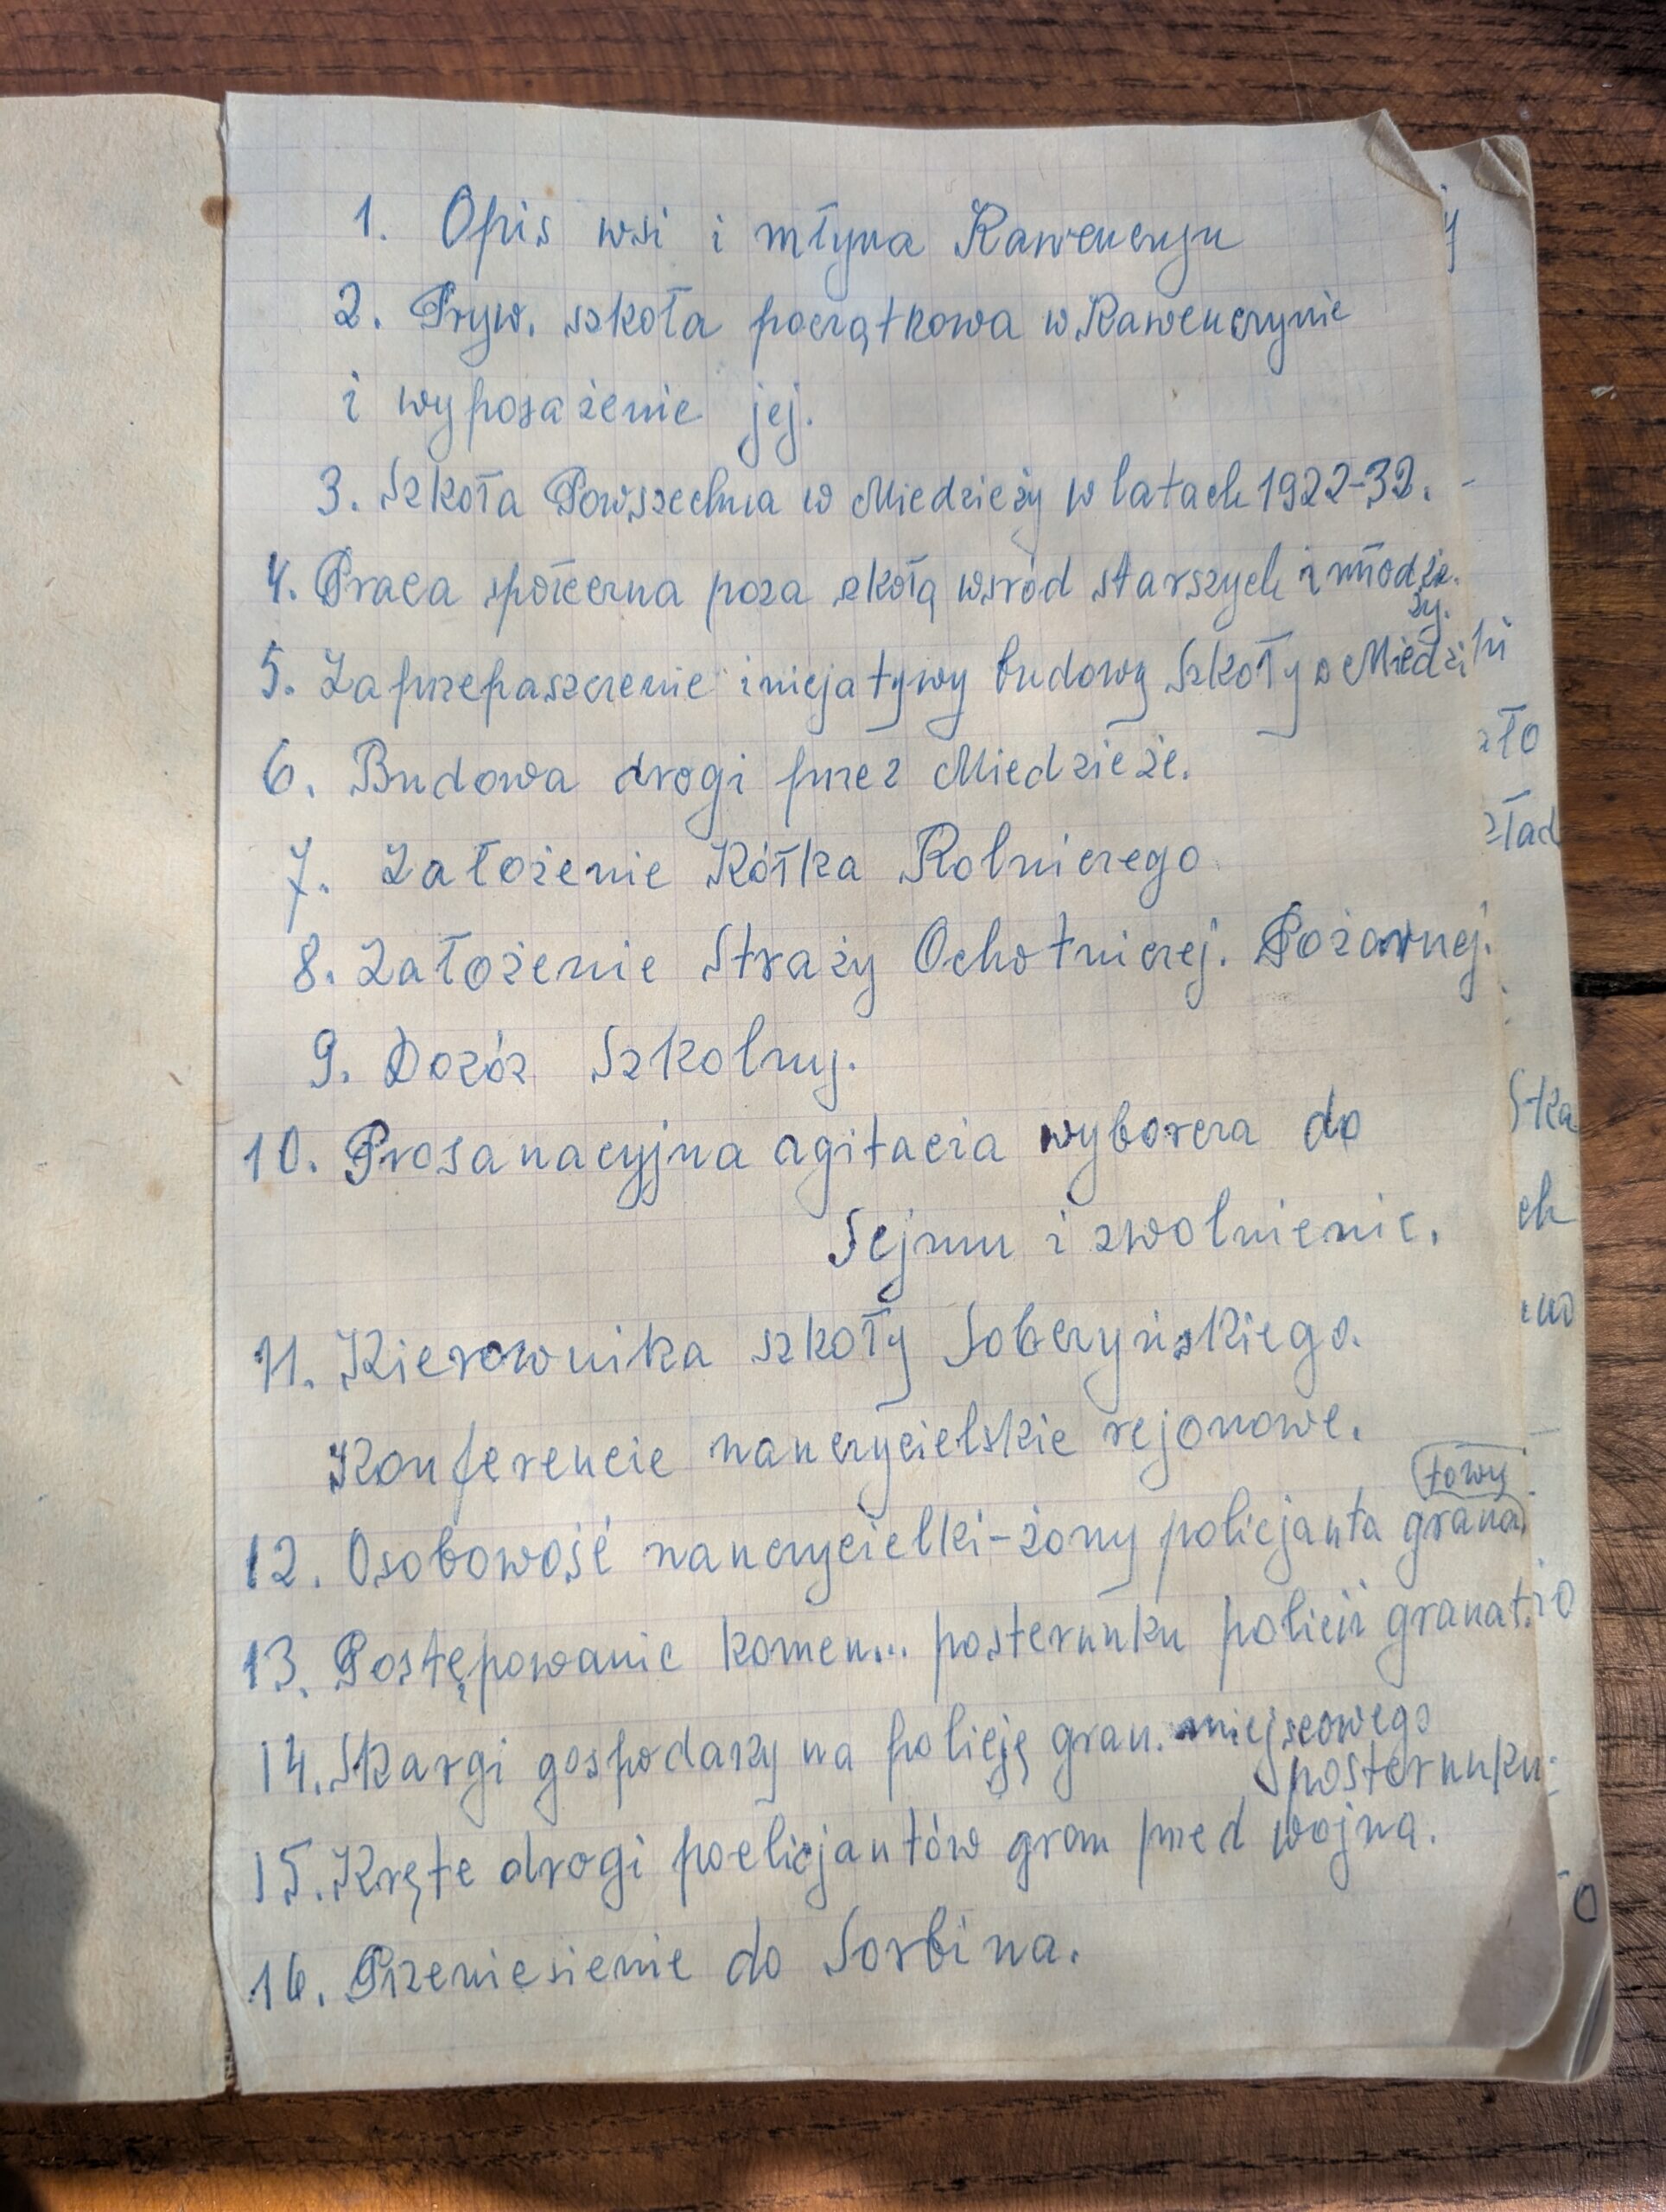 1. Opis wsi i młyna Kawenczyn
2. Pryw. szkoła początkowa w Kawenczynie
i wyposażenie jej.
3. Szkoła Powszechna w Miedzieży w latach 1922-32. -
4. Praca społeczna poza szkołą wśród starszych i młodzie.
ży.
5. Zaprzepaszczenie inicjatywy budowy Szkoły w Miedzi
6. Budowa drogi przez Miedzieże.
7. Założenie Kółka Rolniczego
8. Założenie Straży Ochotniczej. Pożarnej.
9. Dozór Szkolny.
10. Prosanacyjna agitacia wyborcza do
Sejmu i zwolnienie.
11. Kierownika szkoły Sobczyńskiego.
Konferencie nauczycielskie rejonowe.
towy
12. Osobowość nauczycielki-żony policjanta grana
13. Postępowanie komen... posterunku policii granat.
14. Skargi gospodarzy na policję gran. miejscowego
posterunku
15. Kręte drogi poelicjantów gran przed wojną.
16. Przeniesienie do Sorbina.